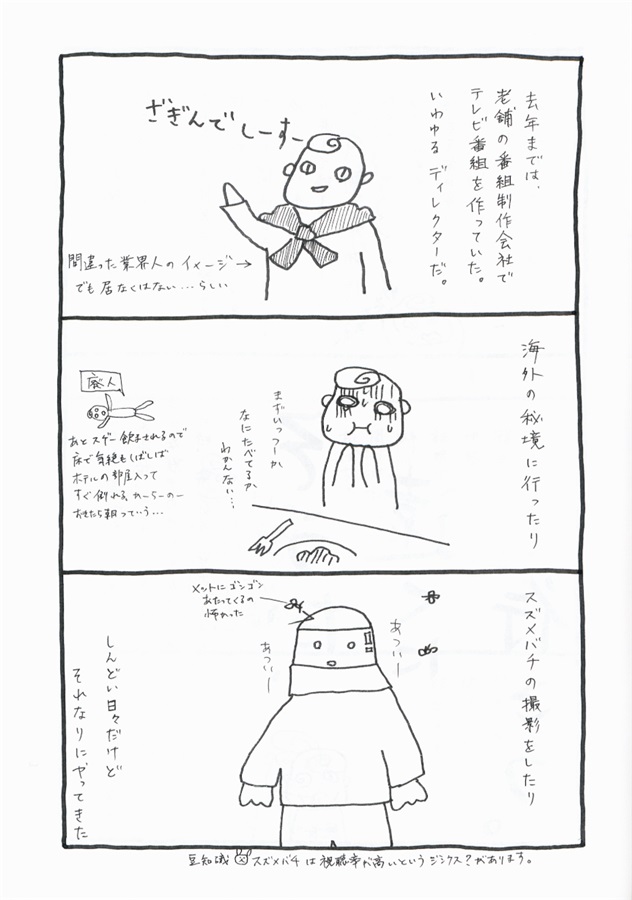 去年までは、
老舗の番組制作会社で
テレビ番組を作っていた。
いわゆる ディレクターだ。
ざぎんで しーすー
間違った業界人のイメージ→
でも居なくはない…らしい
海外の秘境に行ったり
まずいっつーか
なにたべてるか
わかんない…
廃人
あとスゲー飲まされるので
床で気絶もしばしば
ホテルの部屋入って
すぐ倒れる からーのー
おきたら朝っていう…
スズメバチの撮影をしたり
メットにゴンゴン
あたってくるの
怖かった
あつぃー
あつぃー
しんどい日々だけど
それなりにやってきた
豆知識 スズメバチは視聴率が高いというジンクス？があります。